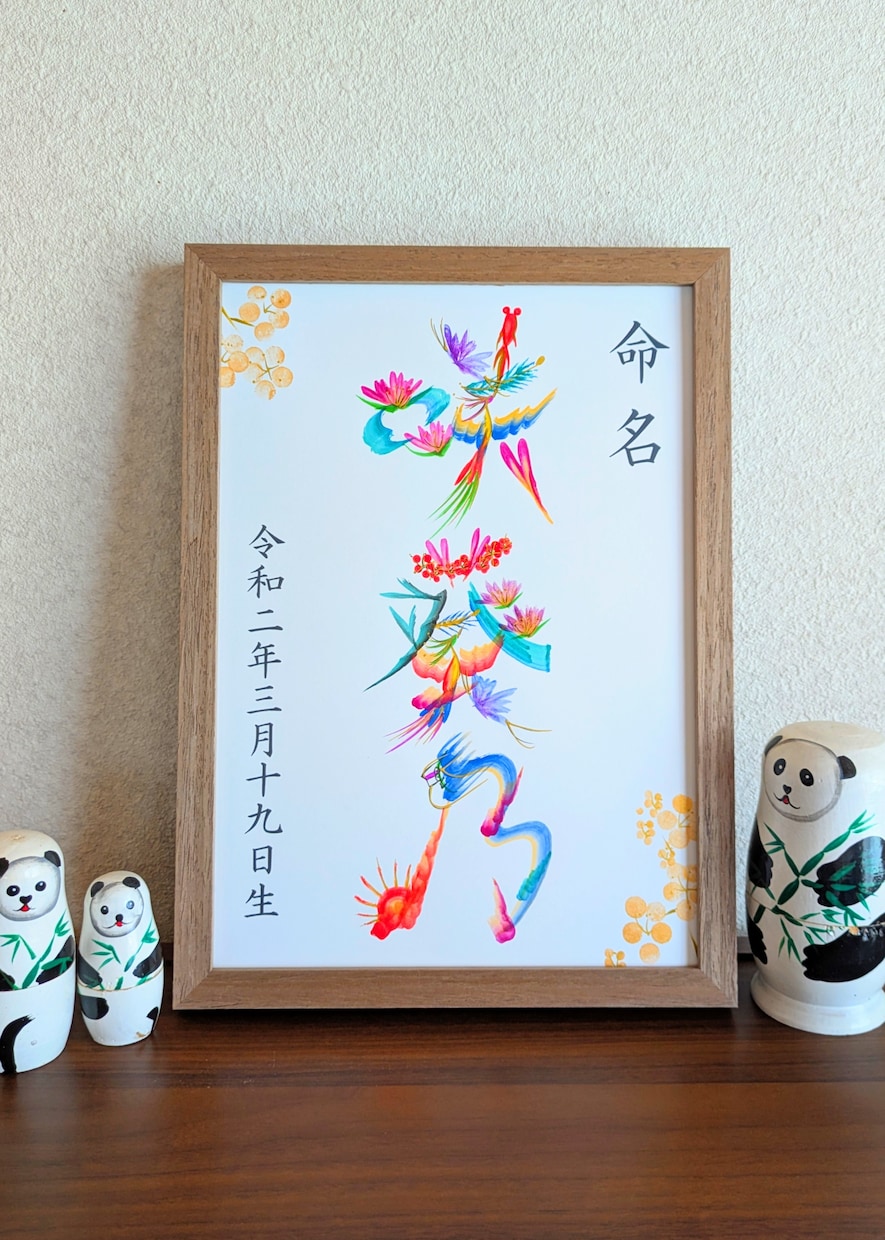 命名
咲葵乃
令和二年三月十九日生